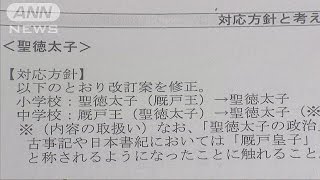 ANN
NEWS
対応方針と考え
<聖徳太子>
【対応方針】
以下のとおり改訂案を修正。
小学校：聖徳太子（厩戸王）→聖徳太子
中学校：厩戸王（聖徳太子）→聖徳太子（
※（内容の取扱い）なお、「聖徳太子の政治」
古事記や日本書紀においては「厩戸皇子」
と称されるようになったことに触れること